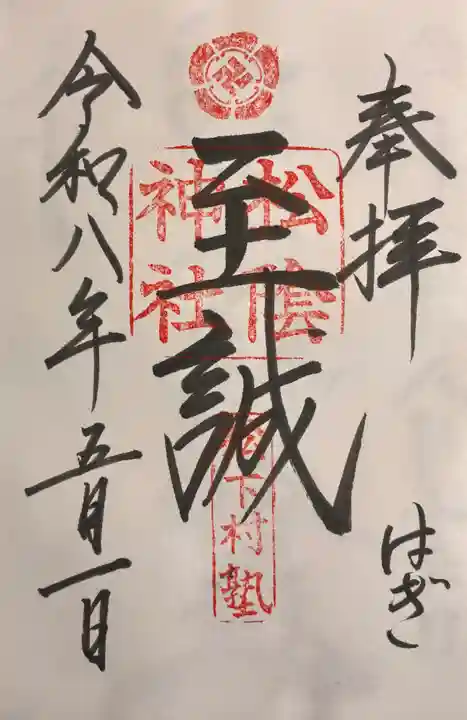 奉拝
はぎ
至誠
松陰
神社
松下村塾
令和八年五月一日